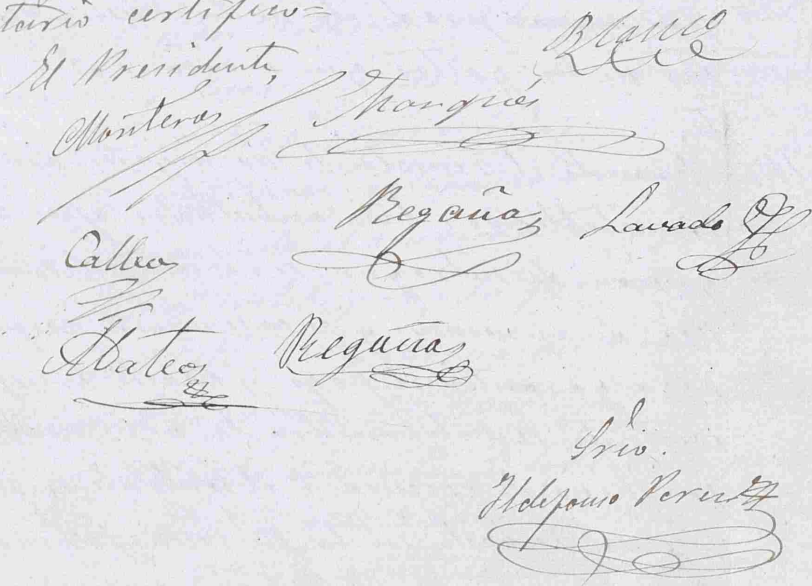 tario certifico=
El Presidente
Blanco
Monteros
Marqués
Regaña
Lavado
Calbo
Mateos
Regaña
Srio.
Ildefonso Perez